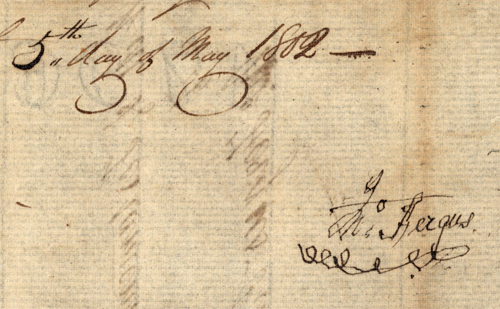 5th day of May 1802 —
Jno Fergus.